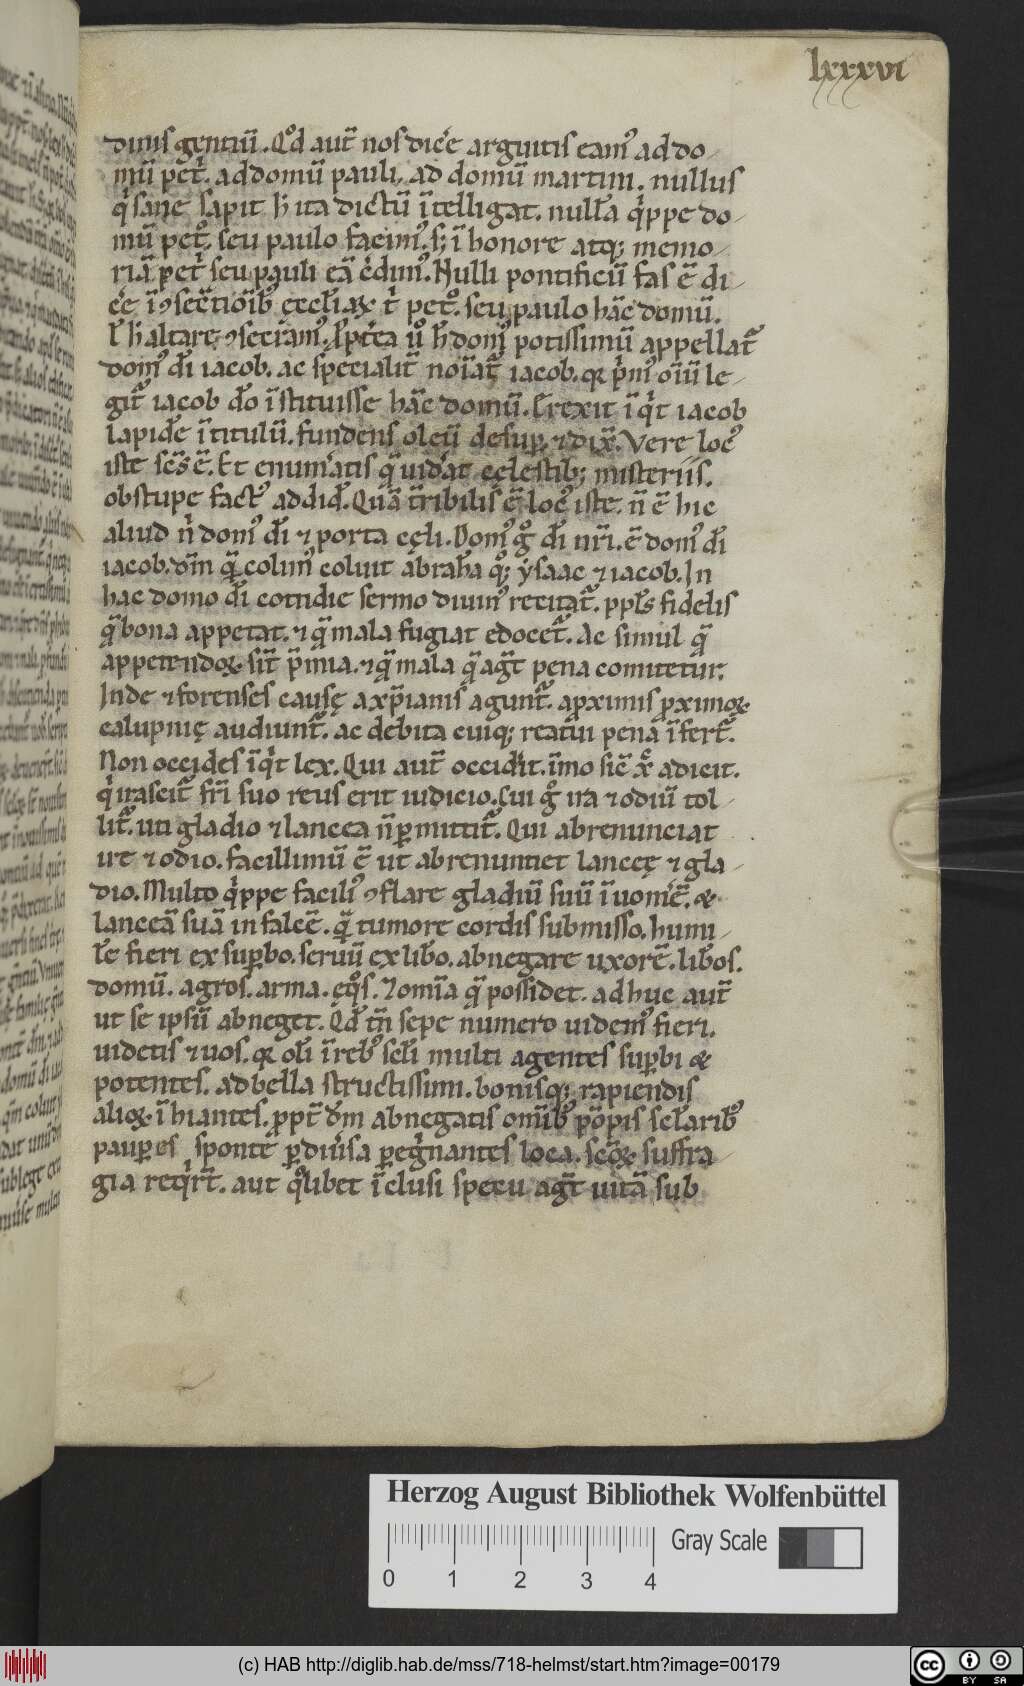 lxxxvi
duus gentiū. Qd̓ aut̄ nos dic̓e arguitis eam᾽ ad do-
mū pet̓. ad domū pauli, ad domū martini. nullus
q̓ sane sapit h̓ ita dictū ītelligat. null̓a q̓ppe do-
mū pet̊. seu paulo facim᾽. s; ī honore atq; memo-
riā pet̓ seu pauli eā c̓dim᾽. Nulli pontificū fas ē di-
c̓e ī ꝯsec̄tiōib᾽ eccl̓iaꝝ t̓ pet̊. seu paulo hāc domū.
l̓ h̓ altare ꝯsec̓am᾽. P̄pt̓ea ů h̓ dom᾽ potissimū appellat᷑
dom᾽ dī iacob. ac specialit̄ noīat᷑ iacob. qr p̓m᾽ oīū le-
git᷑ iacob dō īstituisse hāc domū. Erexit īq̓t iacob
lapidē ī titulū. fundens oleū desup̱. ⁊ dix̄. Vere loc᾽
iste sc̄s ē. Et enum̓atis q̄ uid̓at cęlestib; misteriis.
obstupe fact᾽ addid̄. Quā t̄ribilis ē loc᾽ iste. n̄ ē hic
aliud n̓ dom᾽ dī ⁊ porta cęli. Dom᾽ g̊ dī nr̄i. ē dom᾽ dī
iacob. dm̄ q̄ colim᾽ coluit abrahā q̊; ysaac ⁊ iacob. In
hac domo dī cottidie sermo diuin᾽ recitat᷑. ppl̓s fidelis
q̄ bona appetat. ⁊ q̄ mala fugiat edocet᷑. Ac simul q̄
appetendoꝝ sit̄ p̄mia. ⁊ q̄ mala q̄ agit̄ pena comitetur.
Inde ⁊ forenses causę a xp̄ianis agunt᷑. a ꝓximis ꝓximoꝝ
calupnię audiunt᷑. ac debita cuiq; reatui pena īfert᷑.
Non occides īq̓t lex. Qui aut̄ occid̓it. īmo sic̄ xp̄c adicit.
q̓ irascit᷑ fr̄i suo reus erit iudicio. Cui g̊ ira ⁊ odiū tol-
lit᷑. uti gladio ⁊ lancea n̄ ꝑmittit᷑. Qui abrenunciat
irę ⁊ odio. facillimū ē ut abrenuntiet lancęę ⁊ gla-
dio. Multo q̓ppe facili᾽ ꝯflare gladiū suū ī uom̓ē. &
lanceā suā in falcē. q̄ tumore cordis submisso. humi-
lē fieri ex suꝑbo. seruū ex lib̓o. abnegare uxorē. lib̓os.
domū. agros. arma. eq̊s. ⁊ omīa q̄ possidet. adhuc aut̄
ut se ipsū abneget. Qd̄ tn̄ sepe numero uidem᾽ fieri.
uidetis ⁊ uos. qr ol̄i ī reb᾽ scl̄i multi agentes suꝑbi &
potentes. ad bella structissimi. bonisq; rapiendis
alioꝝ īhiantes. ꝓpt̄ dm̄ abnegatis omīb᾽ pōpis scl̄arib᾽
pauꝑes sponte ꝑ diu̓sa ꝑeg̓nantes loca. scōꝝ suffra-
gia req̓rt̄. aut q̊libet īclusi specu agt̄ uitā sub
Herzog August Bibliothek Wolfenbüttel
Gray Scale
0 1 2 3 4
(c) HAB http://diglib.hab.de/mss/718-helmst/start.htm?image=00179
cc BY SA